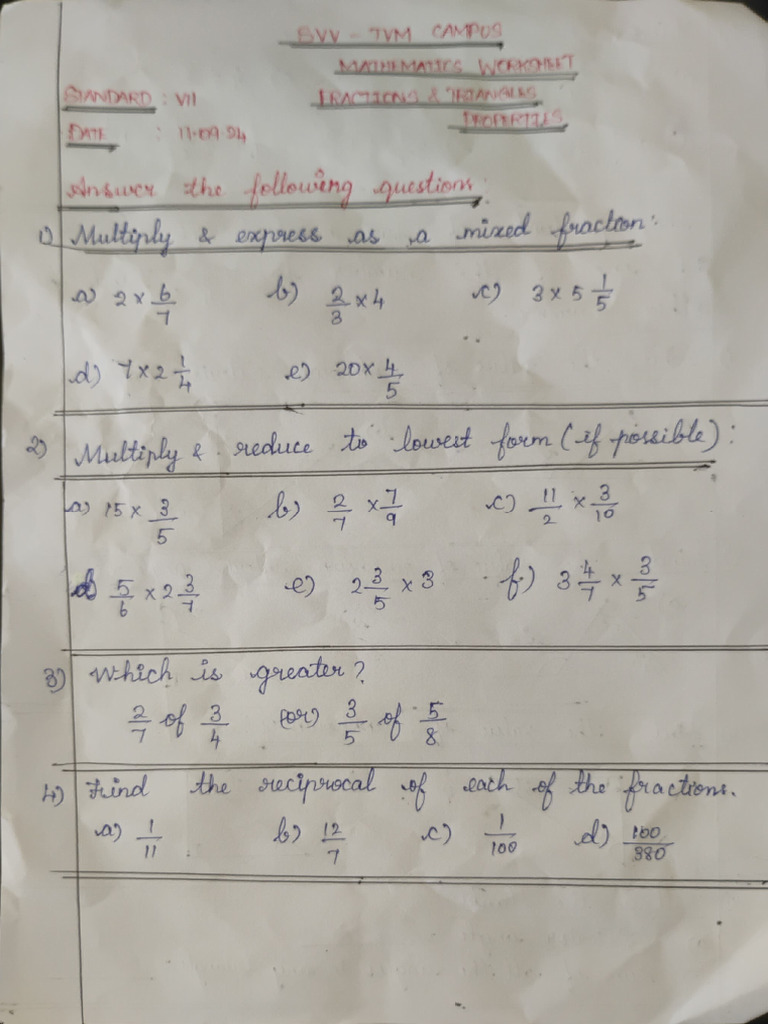 BVV - TVM CAMPUS
MATHEMATICS WORKSHEET
STANDARD : VII FRACTIONS & TRIANGLES
PROPERTIES
DATE : 11.09.24
Answer the following questions:
1) Multiply & express as a mixed fraction:
a) 2 × 6/7 b) 2/3 × 4 c) 3 × 5 1/5
d) 7 × 2 1/4 e) 20 × 4/5
2) Multiply & reduce to lowest form (if possible):
a) 15 × 3/5 b) 2/7 × 7/9 c) 11/2 × 3/10
d) 5/6 × 2 3/7 e) 2 3/5 × 3 f) 3 4/7 × 3/5
3) Which is greater?
2/7 of 3/4 (or) 3/5 of 5/8
4) Find the reciprocal of each of the fractions.
a) 1/11 b) 12/7 c) 1/100 d) 100/380